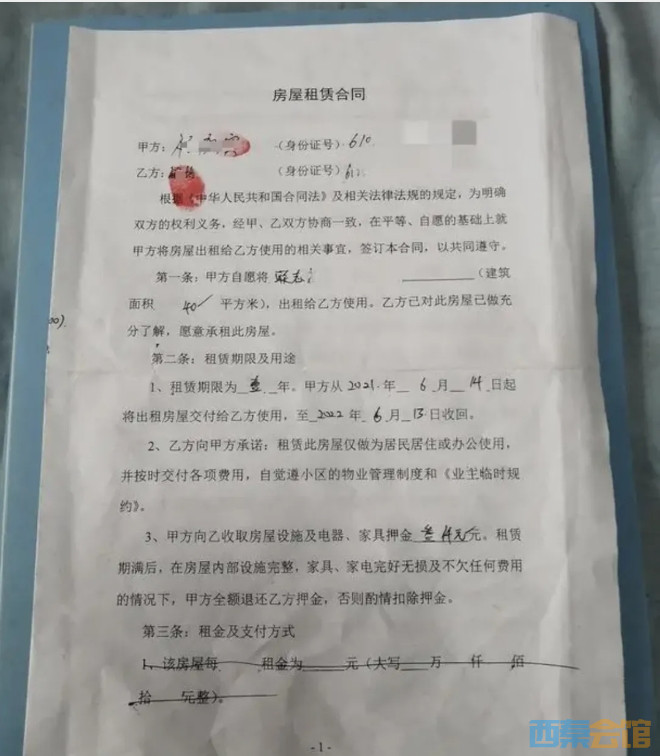 房屋租赁合同
甲方： （身份证号）610
乙方： （身份证号）61
根据《中华人民共和国合同法》及相关法律法规的规定，为明确
双方的权利义务，经甲、乙双方协商一致，在平等、自愿的基础上就
甲方将房屋出租给乙方使用的相关事宜，签订本合同，以共同遵守。
第一条：甲方自愿将 （建筑
面积 40 平方米），出租给乙方使用。乙方已对此房屋已做充
分了解，愿意承租此房屋。
第二条：租赁期限及用途
1、租赁期限为 壹 年。甲方从 2021 年 6 月 14 日起
将出租房屋交付给乙方使用，至 2022 年 6 月 13 日收回。
2、乙方向甲方承诺：租赁此房屋仅做为居民居住或办公使用，
并按时交付各项费用，自觉遵小区的物业管理制度和《业主临时规
约》。
3、甲方向乙收取房屋设施及电器、家具押金 元。租赁
期满后，在房屋内部设施完整，家具、家电完好无损及不欠任何费用
的情况下，甲方全额退还乙方押金，否则酌情扣除押金。
第三条：租金及支付方式
1、该房屋每 租金为 元（大写 万 仟 佰
拾 元整）。
- 1 -
西秦会馆